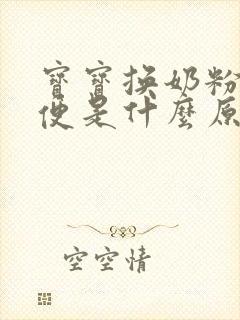 寶寶換奶粉
便是什麼原
空空情